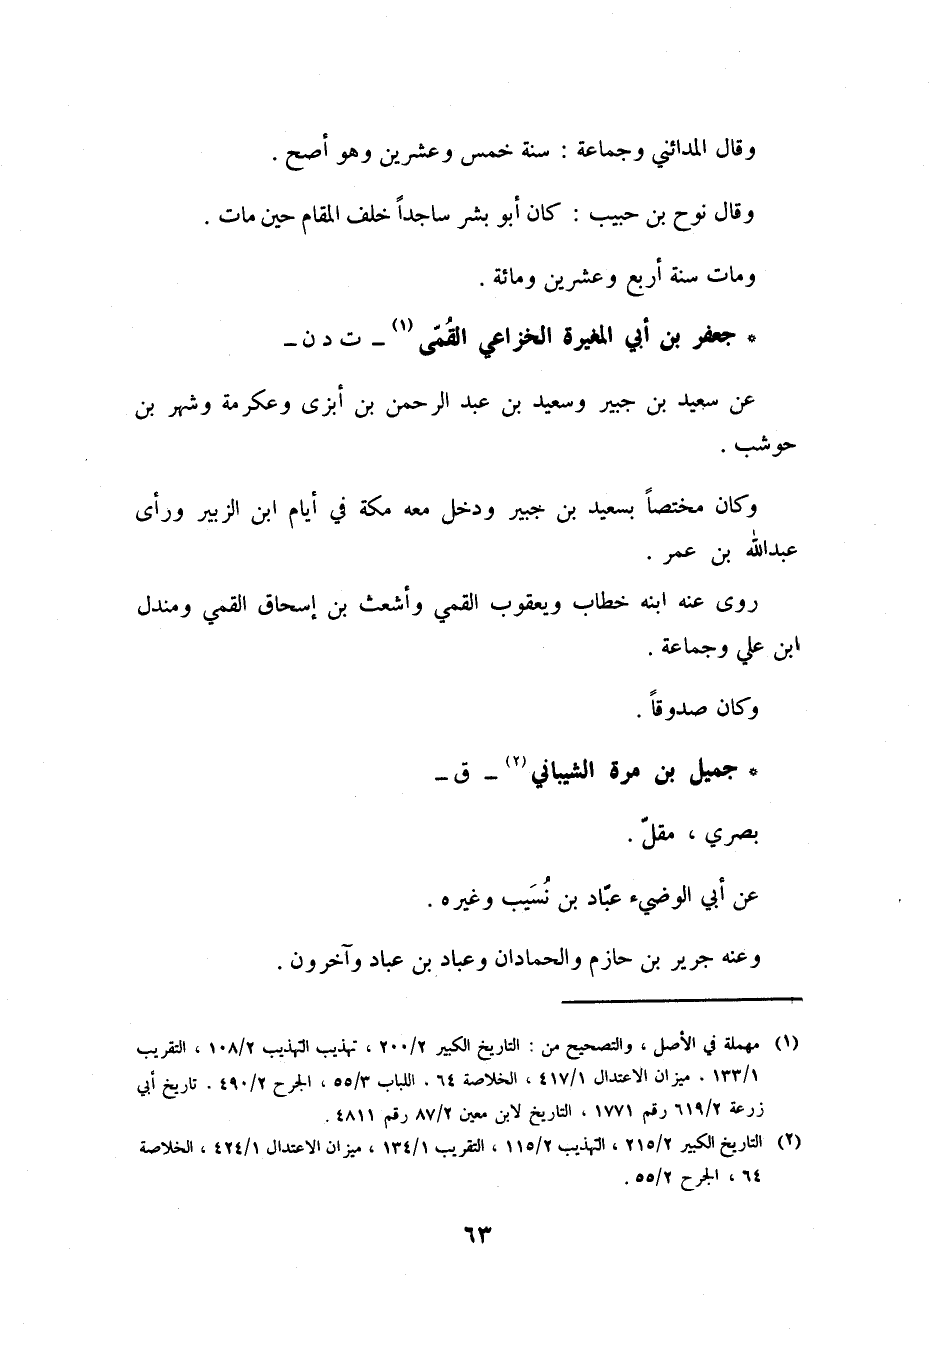 وقال المدائني وجماعة : سنة خمس وعشرين وهو أصح .
وقال نوح بن حبيب : كان أبو بشر ساجداً خلف المقام حين مات .
ومات سنة أربع وعشرين ومائة .
* جعفر بن أبي المغيرة الخزاعي القُمّى (١) ـ ت د ن ـ
عن سعيد بن جبير وسعيد بن عبد الرحمن بن أبزى وعكرمة وشهر بن
حوشب .
وكان مختصاً بسعيد بن جبير ودخل معه مكة في أيام ابن الزبير ورأى
عبدالله بن عمر .
روى عنه ابنه خطاب ويعقوب القمي وأشعث بن إسحاق القمي ومندل
ابن علي وجماعة .
وكان صدوقاً .
* جميل بن مرة الشيباني (٢) ـ ق ـ
بصري ، مقلّ .
عن أبي الوضيء عبّاد بن نُسَيب وغيره .
وعنه جرير بن حازم والحمادان وعباد بن عباد وآخرون .
(١) مهملة في الأصل ، والتصحيح من : التاريخ الكبير ٢٠٠/٢ ، تهذيب التهذيب ١٠٨/٢ ، التقريب
١٣٣/١ . ميزان الاعتدال ٤١٧/١ ، الخلاصة ٦٤ . اللباب ٥٥/٣ ، الجرح ٤٩٠/٢ . تاريخ أبي
زرعة ٦١٩/٢ رقم ١٧٧١ ، التاريخ لابن معين ٨٧/٢ رقم ٤٨١١ .
(٢) التاريخ الكبير ٢١٥/٢ ، التهذيب ١١٥/٢ ، التقريب ١٣٤/١ ، ميزان الاعتدال ٤٢٤/١ ، الخلاصة
٦٤ ، الجرح ٥٥/٢ .
٦٣